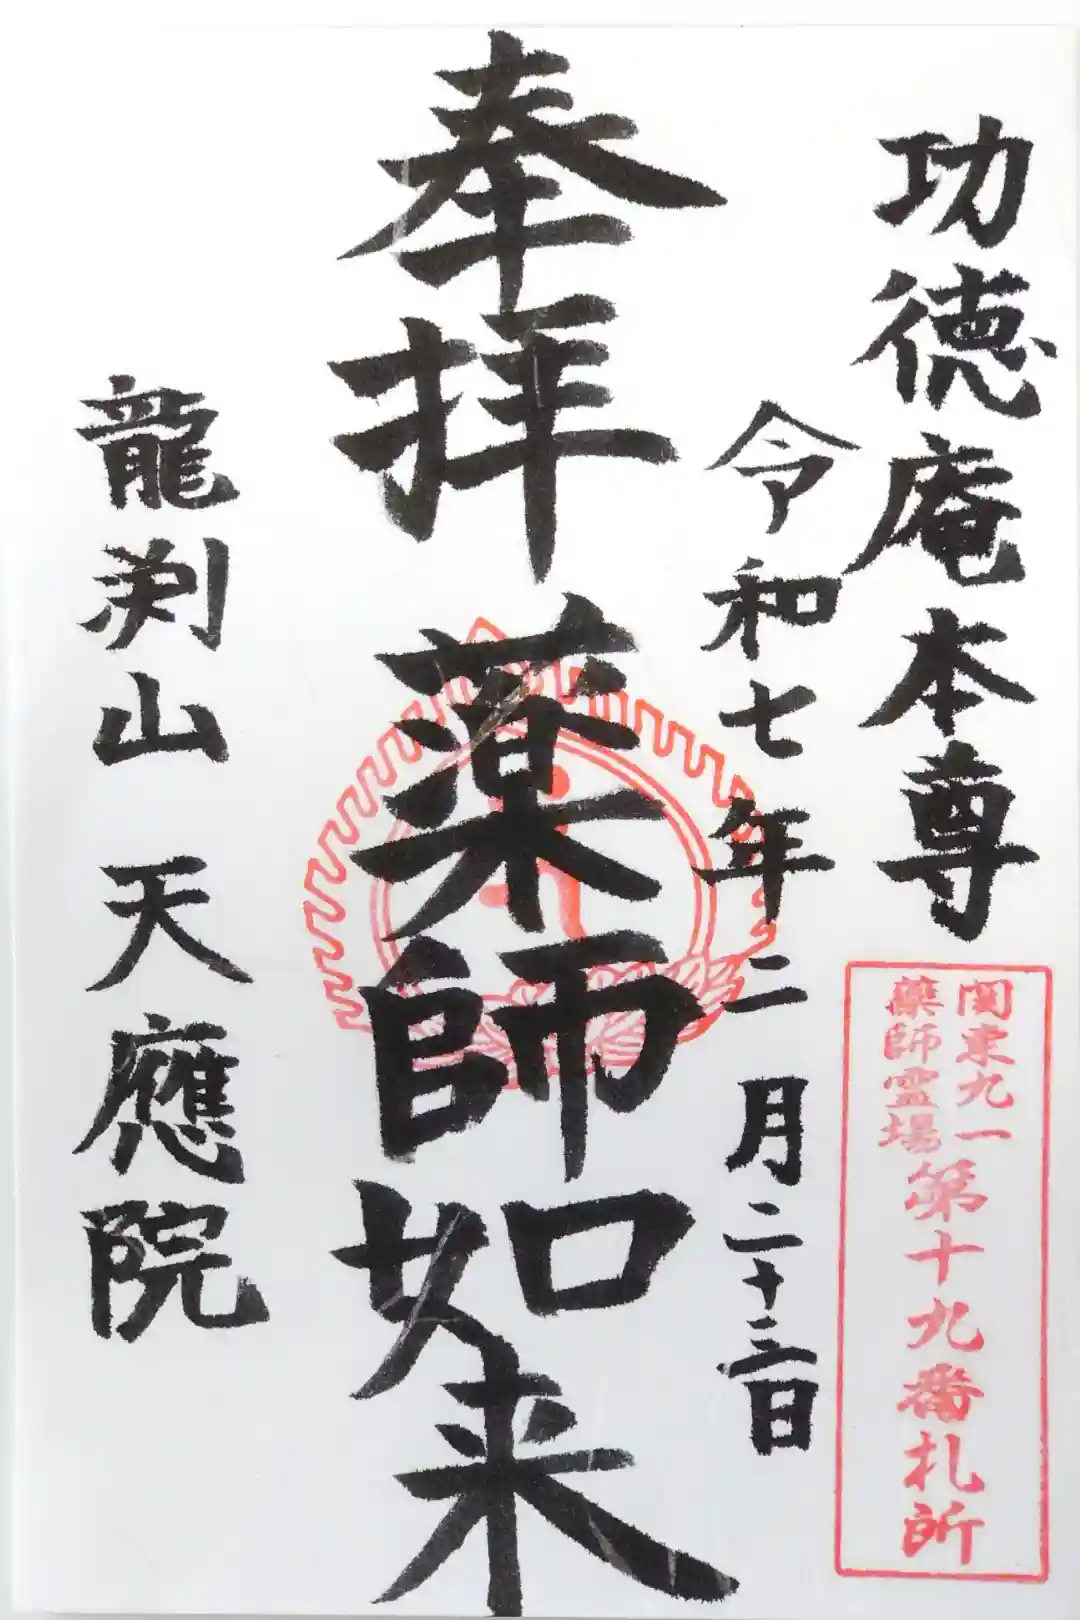 功徳庵本尊
関東九一
薬師霊場
第十九番札所
令和七年二月二十三日
奉拝
薬師如来
龍渕山 天應院